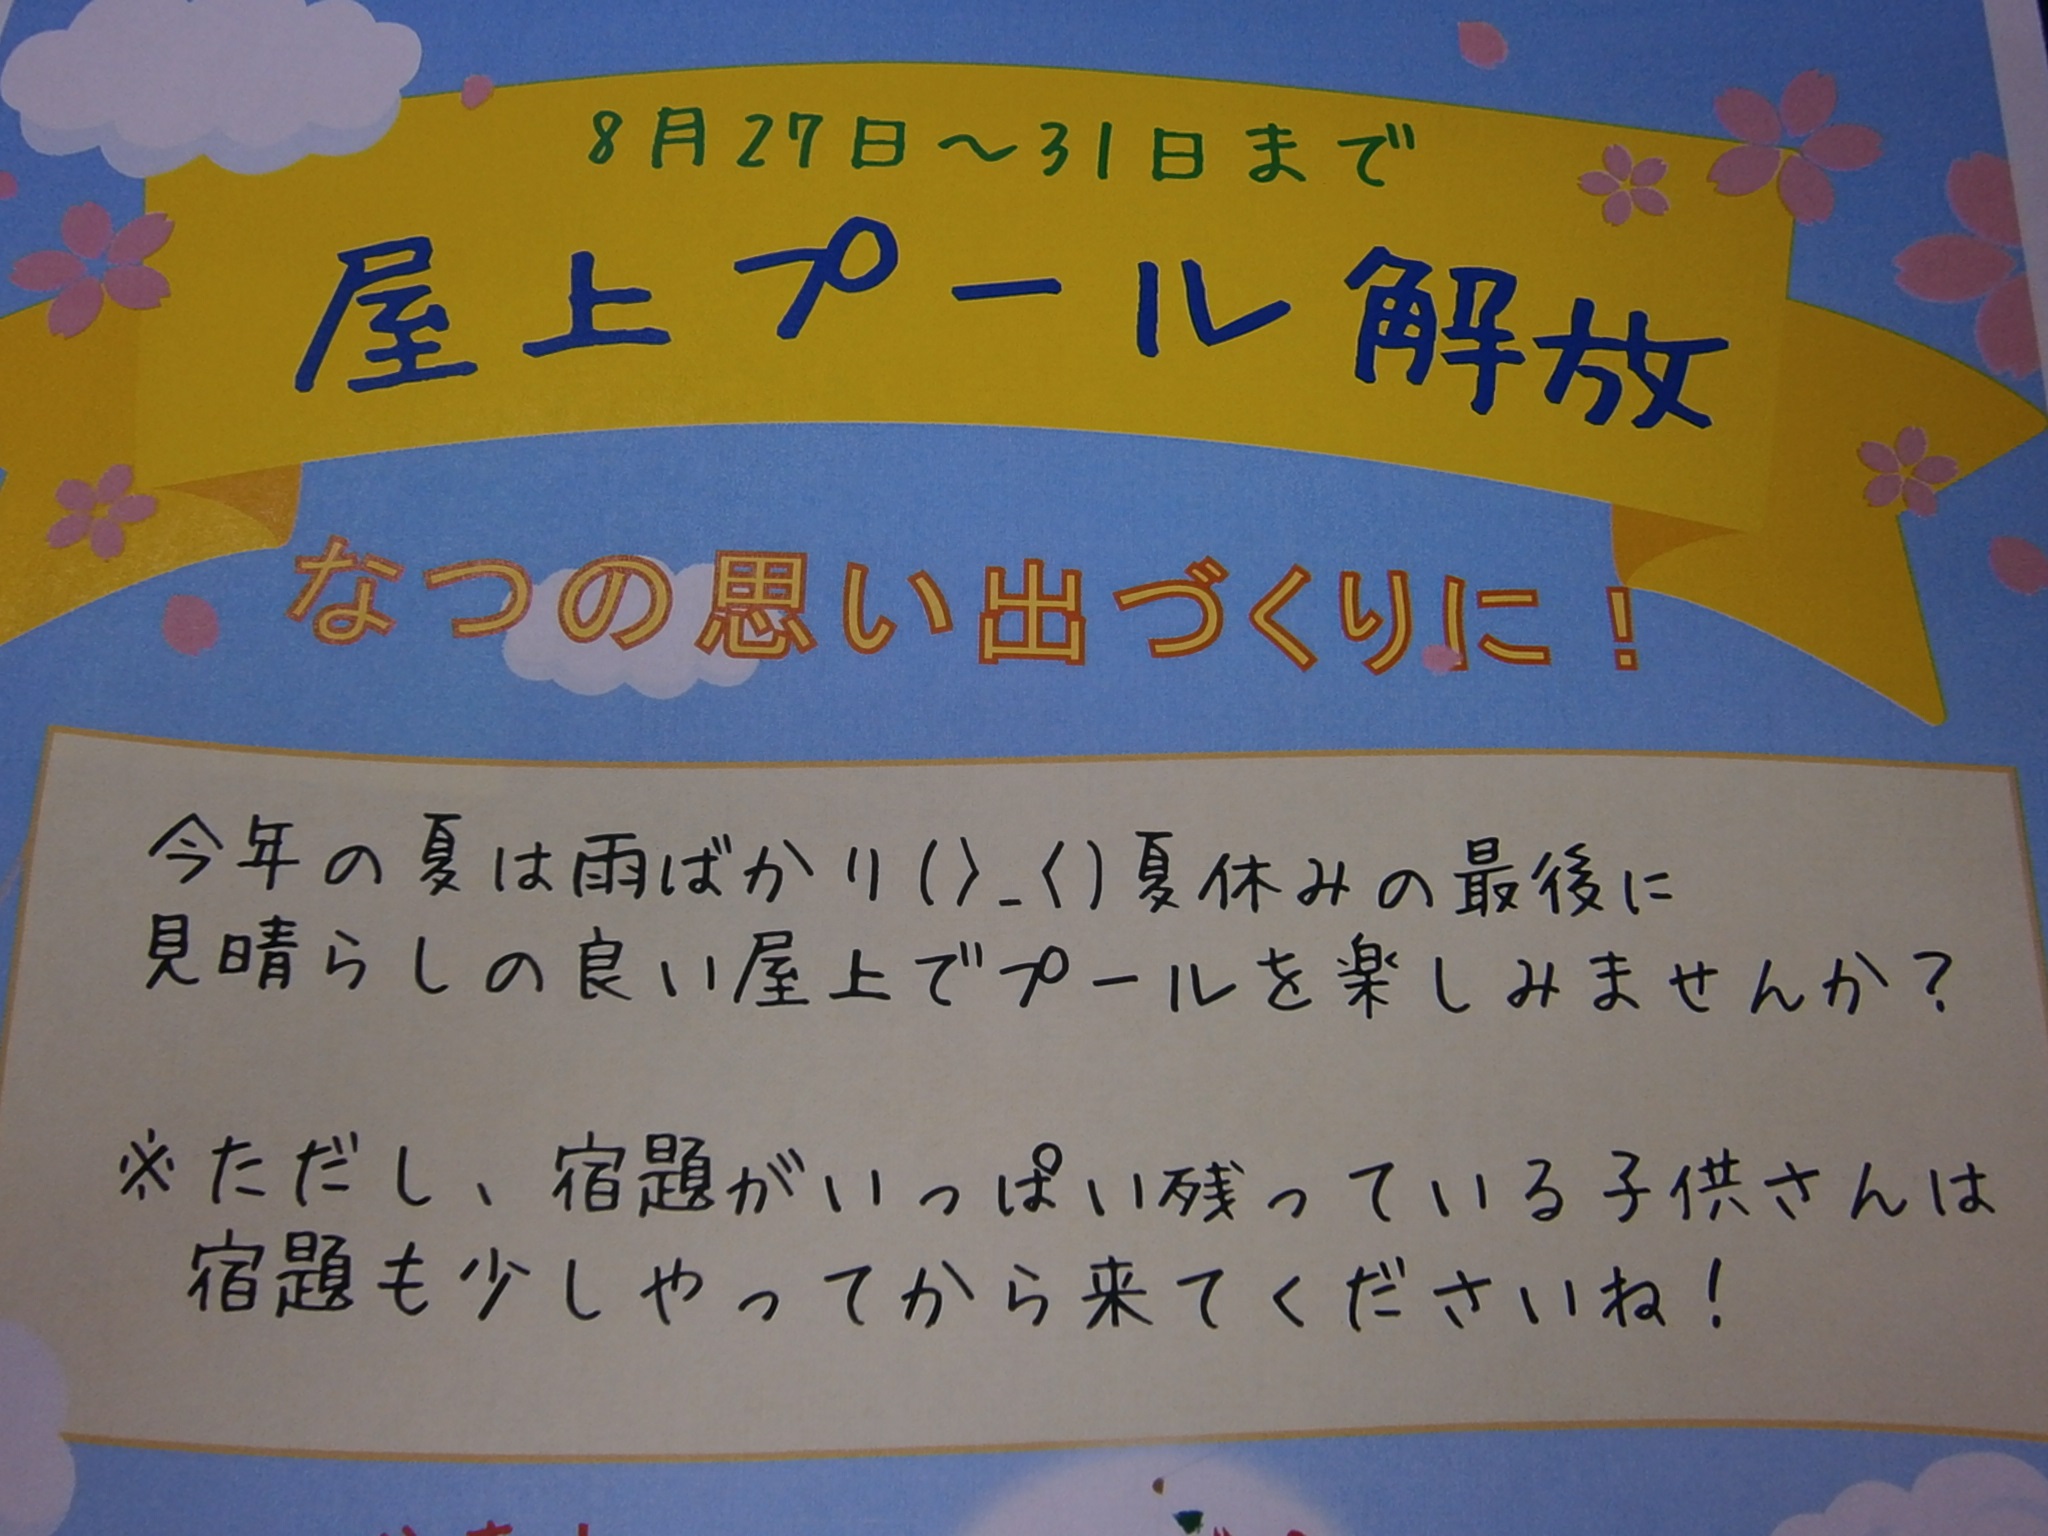 8月27日～31日まで
屋上プール解放
なつの思い出づくりに！
今年の夏は雨ばかり(〉_〈)夏休みの最後に
見晴らしの良い屋上でプールを楽しみませんか？
※ただし、宿題がいっぱい残っている子供さんは
宿題も少しやってから来てくださいね！